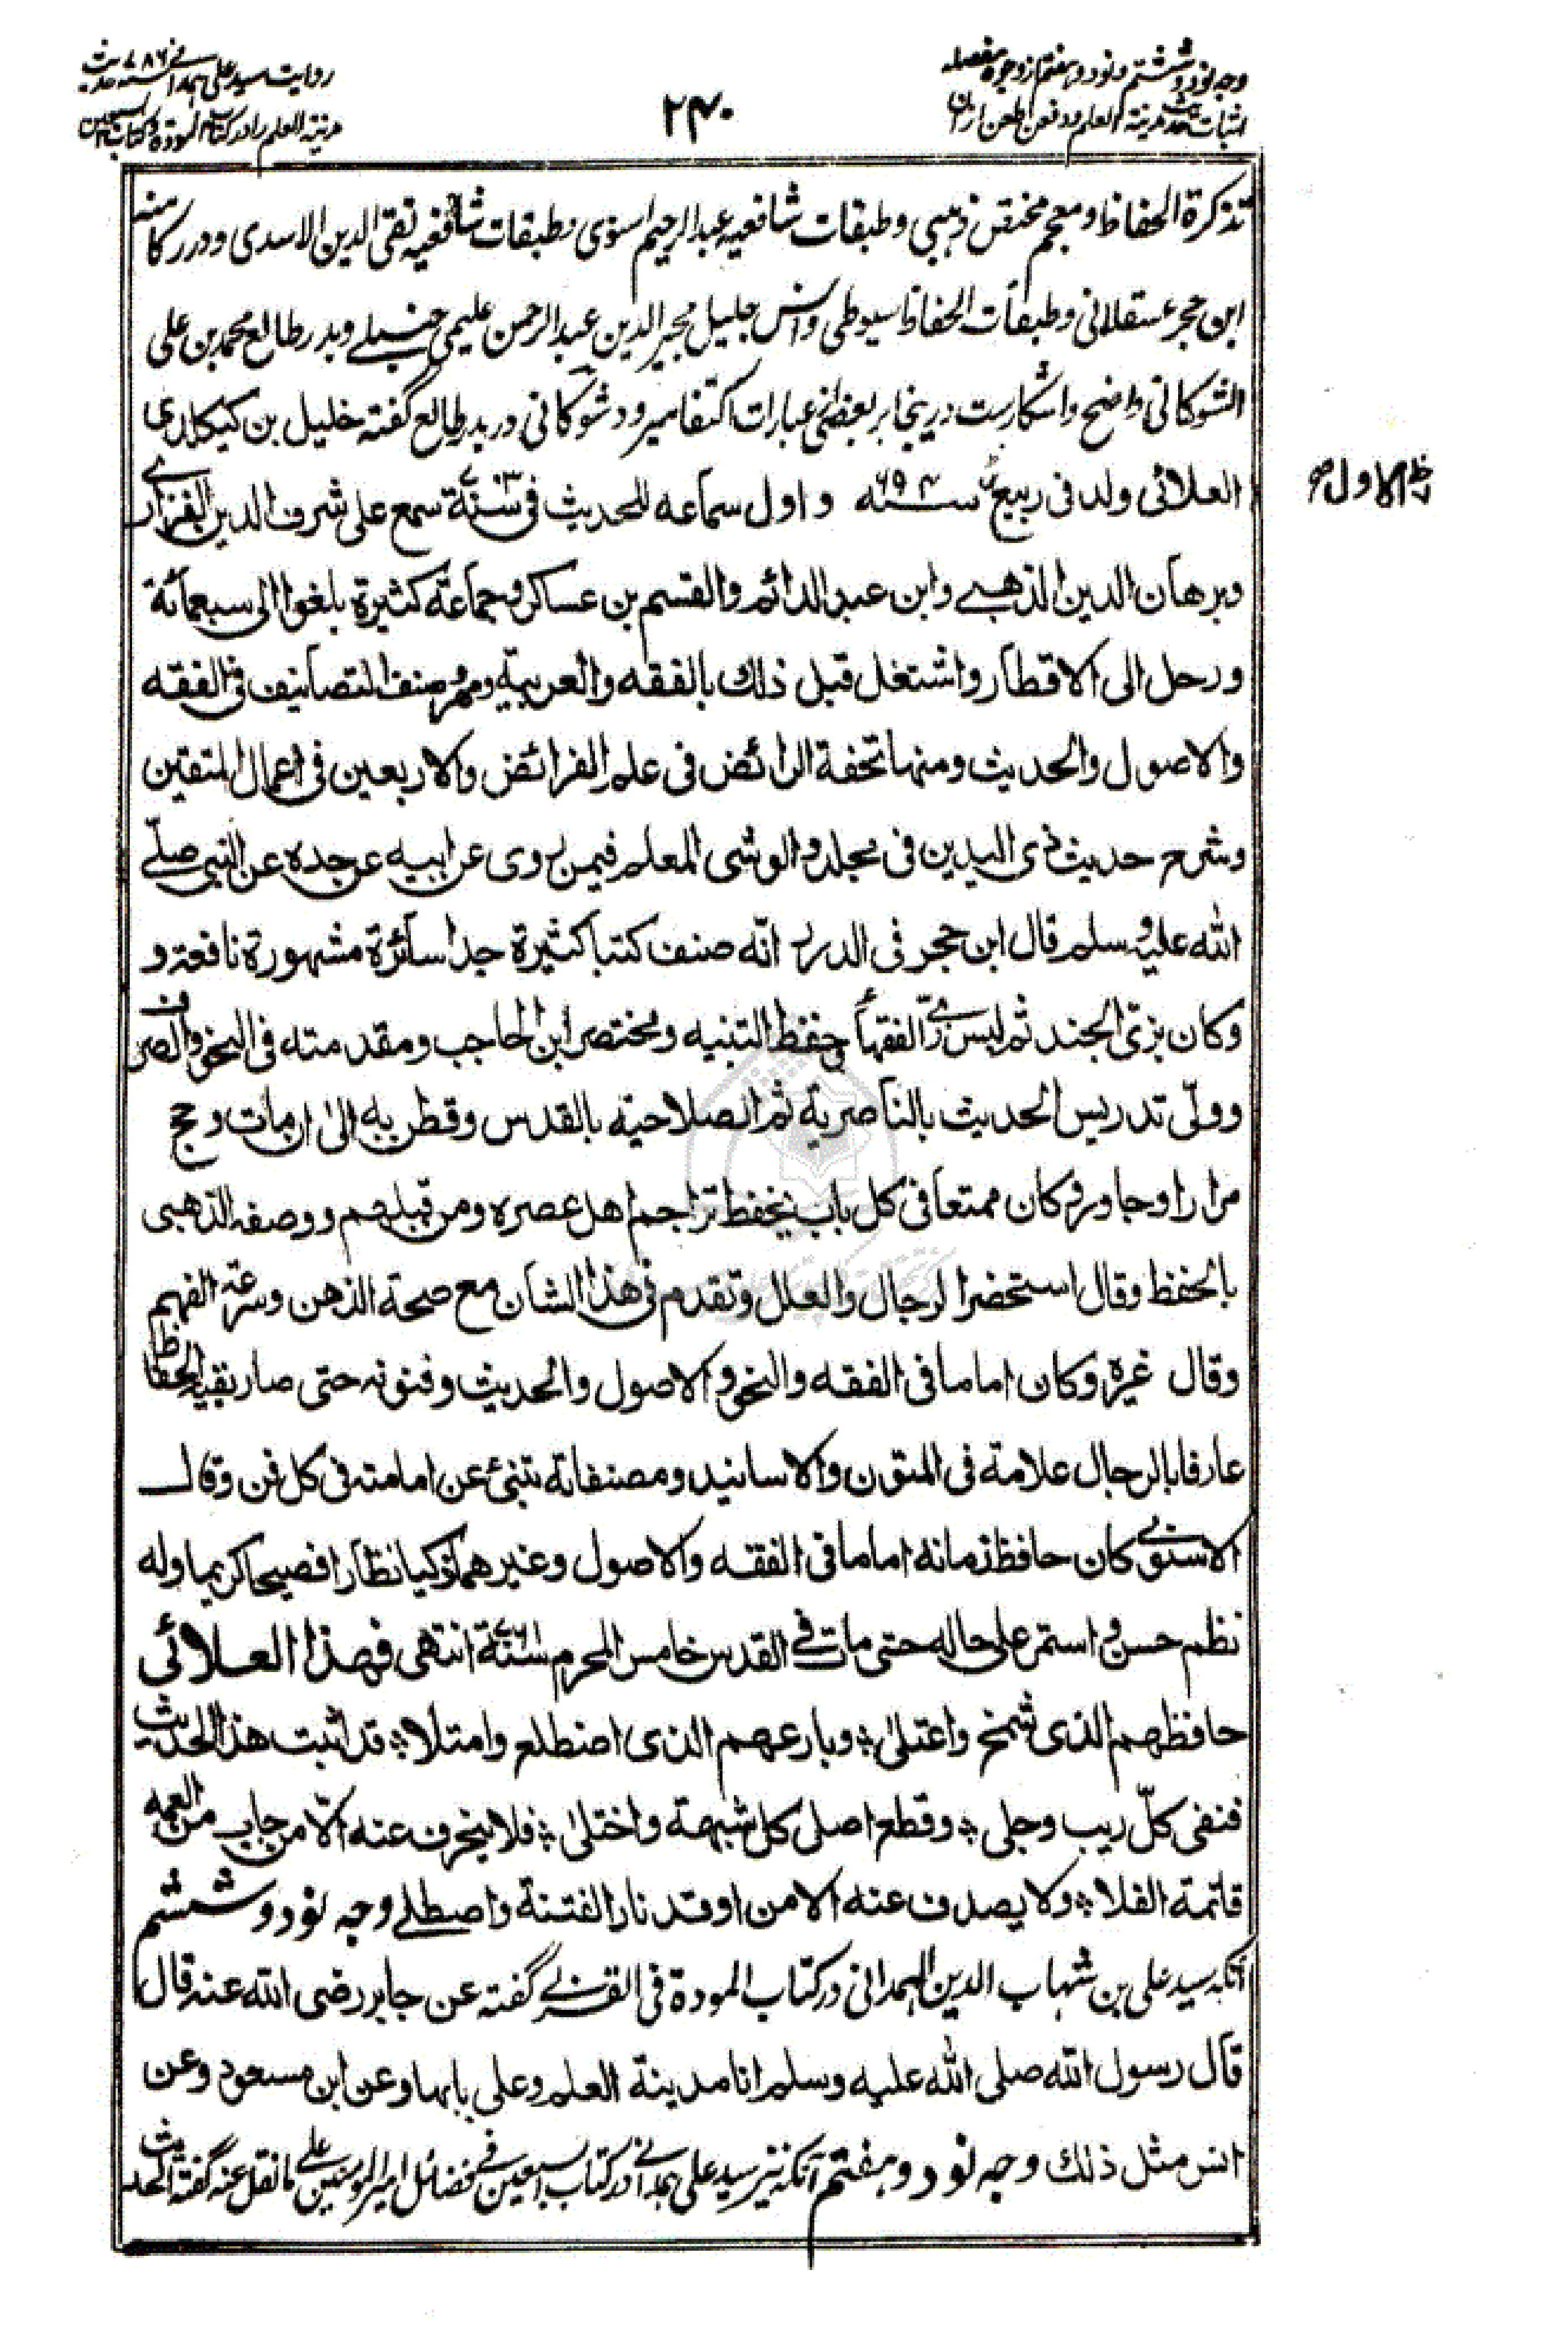 وجه نود و ششم و نود و هفتم از وجوه مفصله
اثبات حدیث مدینة العلم و دفع مطاعن از ان
۲۴۰
روایت سید علی همدانی ۷۸۶ حدیث
مدینة العلم را در کتاب المودة و کتاب السبعین
تذکرة الحفاظ و معجم مختص ذهبی و طبقات شافعیه عبد الرحیم اسنوی و طبقات شافعیه تقی الدین الاسدی و درر کامنه
ابن حجر عسقلانی و طبقات الحفاظ سیوطی و انس جلیل مجیر الدین عبد الرحمن علیمی حنبلی و بدر طالع محمد بن علی
الشوکانی واضح و اشکارست درینجا بر بعضی عبارات اکتفا میرود شوکانی در بدر طالع گفته خلیل بن کیکلدی
العلائی ولد فی ربیع سنه ۶۹۴ و اول سماعه للحدیث فی سنة ۷۰۳ سمع علی شرف الدین الفزاری
الاول
وبرهان الدین الذهبی وابن عبد الدائم والقسم بن عساکر وجماعة کثیرة بلغوا الی سبعمائة
ورحل الی الاقطار واشتغل قبل ذلک بالفقه والعربیة ومهر وصنف التصانیف فی الفقه
والاصول والحدیث ومنها تحفة الرائض فی علم الفرائض والاربعین فی اعمال المتقین
وشرح حدیث ذی الیدین فی مجلد والوشی المعلم فیمن روی عن ابیه عن جده عن النبی صلی
الله علیه وسلم قال ابن حجر فی الدرر انه صنف کتبا کثیرة جدا سائرة مشهورة نافعة و
وکان بزی الجند ثم لبس زی الفقهاء وحفظ التنبیه ومختصر ابن الحاجب ومقدمته فی النحو والصرف
وولی تدریس الحدیث بالناصریة ثم الصلاحیة بالقدس وقطن به الی ان مات وحج
مرارا وجاور وکان ممتعا فی کل باب یحفظ تراجم اهل عصره ومن قبلهم ووصفه الذهبی
بالحفظ وقال استحضر الرجال والعلل وتقدم فی هذا الشان مع صحة الذهن وسرعة الفهم
وقال غیره وکان اماما فی الفقه والنحو والاصول والحدیث وفنونه حتی صار بقیة الحفاظ
عارفا بالرجال علامة فی المتون والاسانید ومصنفاته تنبئ عن امامته فی کل فن وقال
الاسنوی کان حافظ زمانه اماما فی الفقه والاصول وغیرهما ذکیا نظارا فصیحا کریما وله
نظم حسن واستمر علی حاله حتی مات فی القدس خامس المحرم سنة ۷۶۱ انتهی فهذا العلائی
حافظهم الذی شمخ واعتلی؛ وبارعهم الذی اضطلع وامتلا؛ قد اثبت هذا الحدیث
فنفی کل ریب وجلی؛ وقطع اصل کل شبهة واختلی؛ فلا ینحرف عنه الا من جاب من العمه
قاتمة الفلا؛ ولا یصدف عنه الا من اوقد نار الفتنة واصطلی وجه نود و ششم
آنکه سید علی بن شهاب الدین الهمدانی در کتاب المودة فی القربی گفته عن جابر رضی الله عنه قال
قال رسول الله صلی الله علیه وسلم انا مدینة العلم وعلی بابها وعن ابن مسعود وعن
انس مثل ذلک وجه نود و هفتم آنکه نیز سید علی همدانی در کتاب السبعین فی فضائل امیر المومنین علی ما نقل عنه گفته الحدیث